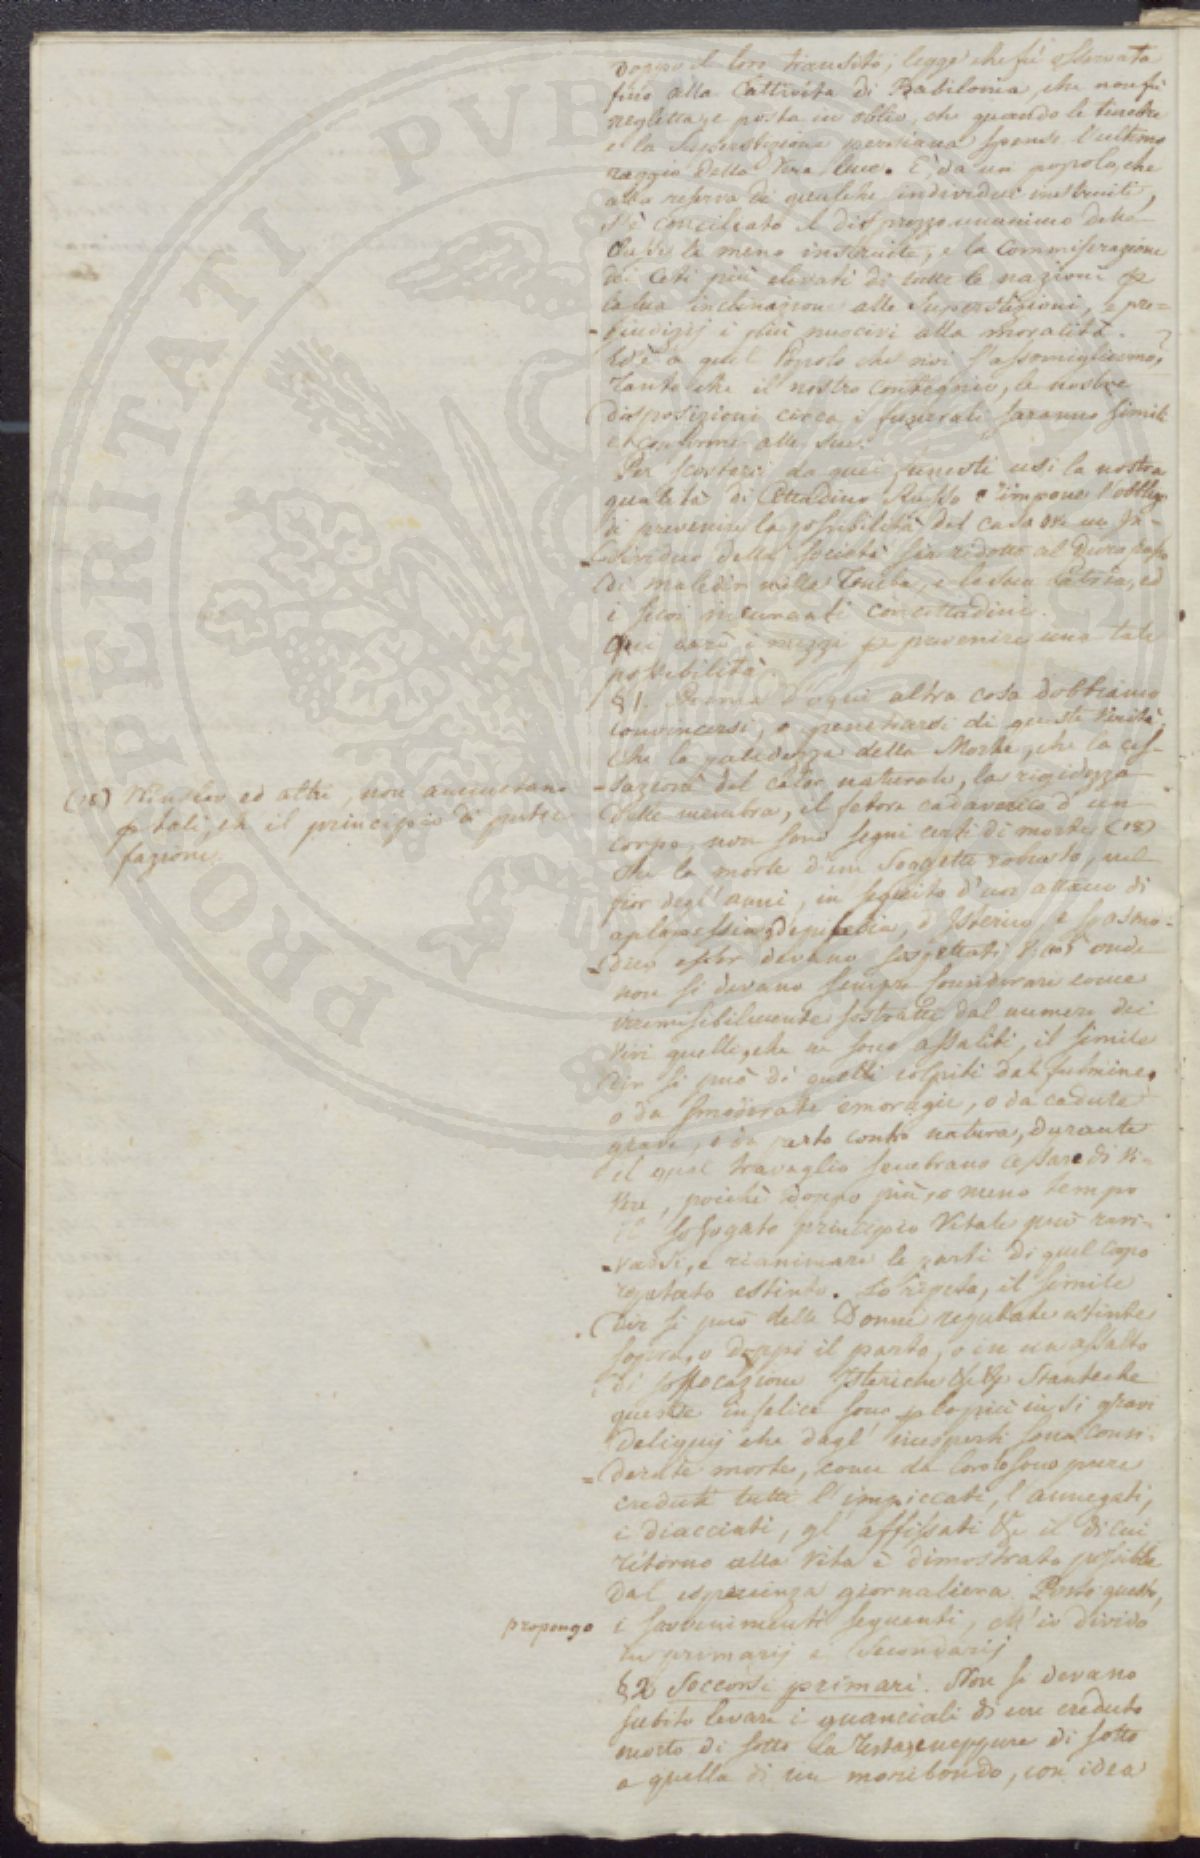 Doppo il loro transito; legge che fù osservata
fino alla Cattività di Babilonia, che non fù
negletta, e posta in oblio, che quando le tenebre
e la Superstizione persiana spense l'ultimo
raggio della Vera luce. È da un popolo, che
alla riserva di qualche individui instruiti,
s'è conciliato il disprezzo unanimo delle
Classi le meno instruite, e la Commiserazione
dei Ceti più elevati di tutte le nazioni p
la sua inclinazion alle Superstizioni, e pre=
=giudizij i più nuocivi alla moralità.
Ed'è a quel Popolo che noi s'assomigliamo,
Tanto che il nostro contegnio, le nostre
disposizioni circa i funerali saranno simili
e conformi alle sue.
Per scostarsi da quei funesti usi la nostra
qualità di Cittadino Russo c'impone l'obbligo
di prevenire la possibilità del caso che un In=
=dividuo della società sia ridotto al Duro passo
di maledir nella Tomba, e la sua Patria, ed
i suoi incuranti concittadini.
Qui sarà i mezzi p prevenire una tale
possibilità
§1. Prima d'ogni altra cosa dobbiamo
convincersi, e penetrarsi di queste Verità.
Che la palidezza della Morte, che la ces=
=sazione del calor naturale, la rigidezza
delle membra, il fetore cadaverico d'un
corpo, non sono segni certi di morte (18)
(18) Winslov ed altri, non ammettano
p tali, ch' il principio di putre
fazione.
Che la morte d'un Soggetto robusto, nel
fior degl'anni, in seguito d'un attacco di
aplopessia, d'epilessia, d'Isterico, e spasmo=
=dico esser devano sospettati onde
non si devano sempre considerare come
irremisibilmente sostratte dal numero dei
Vivi quelli, che ne sono assaliti, il simile
dir si può di quelli colpiti dal fulmine,
o da smoderate emoragie, o da cadute
gravi, o da parto contro natura, durante
il qual travaglio sembrano cessare di Vi=
vere, poichè doppo più, o meno tempo
il sofogato principio Vitale può ravi=
=varsi, e rianimare le parti di quel corpo
reputato estinto. Lo ripeto, il simile
dir si può delle Donne reputate estinte
sopra, o doppo il parto, o in un assalto
di soffocazione Isteriche &c &c Stanteche
queste infelici sono p lo più in si gravi
deliquij che dagl'inesperti sono consi=
=derate morte, come da loro lo sono pure
creduti tutti l'impiccati, l'annegati,
i diacciati, gl'affissati &c il di cui
ritorno alla Vita è dimostrato possibile
dal esperienza giornaliera. Posto questo,
propongo i sovvenimenti seguenti, ch'io divido
in primarij e Secondarij
§2 Soccorsi primari. Non si devano
subito levare i guanciali di un creduto
morto di sotto la Testa, e neppure di sotto
a quella di un moribondo, con idea